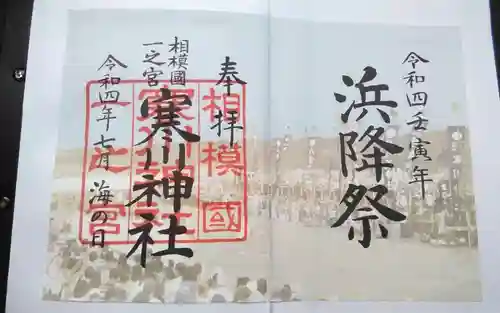 令和四壬寅年
浜降祭
奉拝
相模國
一之宮
寒川神社
令和四年七月 海の日
相模國
一之宮